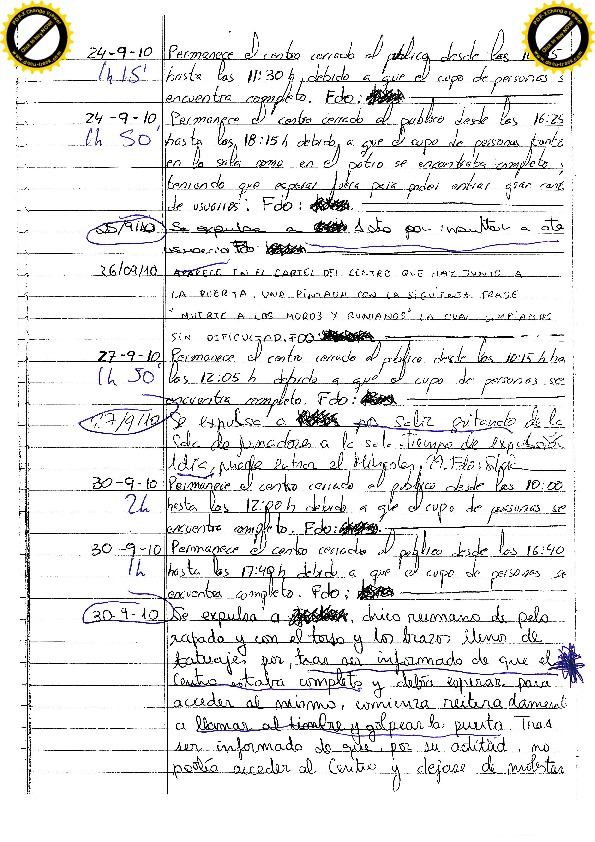 24-9-10 Permanece el centro cerrado al público, desde las
1h 15' hasta las 11:30 h, debido a que el cupo de personas s
encuentra completo. Fdo:
24-9-10 Permanece el centro cerrado al público desde las 16:25
1h 50' hasta las 18:15 h debido a que el cupo de personas tanto
en la sala como en el patio se encontraba completo,
teniendo que esperar fuera para poder entrar gran cant
de usuarios. Fdo:
25/9/10 Se expulsa a por insultar a otro
usuario Fdo:
26/09/10 APARECE EN EL CARTEL DEL CENTRO QUE HAY JUNTO A
LA PUERTA, UNA PINTADA CON LA SIGUIENTE FRASE
"MUERTE A LOS MOROS Y RUMANOS" LA CUAL LIMPIAMOS
SIN DIFICULTAD. FDO:
27-9-10 Permanece el centro cerrado al público desde las 10:15 h ha
1h 50' las 12:05 h debido a que el cupo de personas se
encuentra completo. Fdo:
27/9/10 Se expulsa a por salir gritando de la
Sala de fumadores a la sala. tiempo de expulsión
1 día, puede entrar el Fdo:
30-9-10 Permanece el centro cerrado al público desde las 10:00
2h hasta las 12:00 h debido a que el cupo de personas se
encuentra completo. Fdo:
30-9-10 Permanece el centro cerrado al público desde las 16:40
1h hasta las 17:40 h debido a que el cupo de personas se
encuentra completo. Fdo:
30-9-10 Se expulsa a , chico rumano de pelo
rapado y con el torso y los brazos llenos de
tatuajes por, tras ser informado de que el
Centro estaba completo y debía esperar para
acceder al mismo, comienza reiteradament
a llamar al timbre y golpear la puerta. Tras
ser informado de que, por su actitud, no
podía acceder al Centro y dejase de molestar